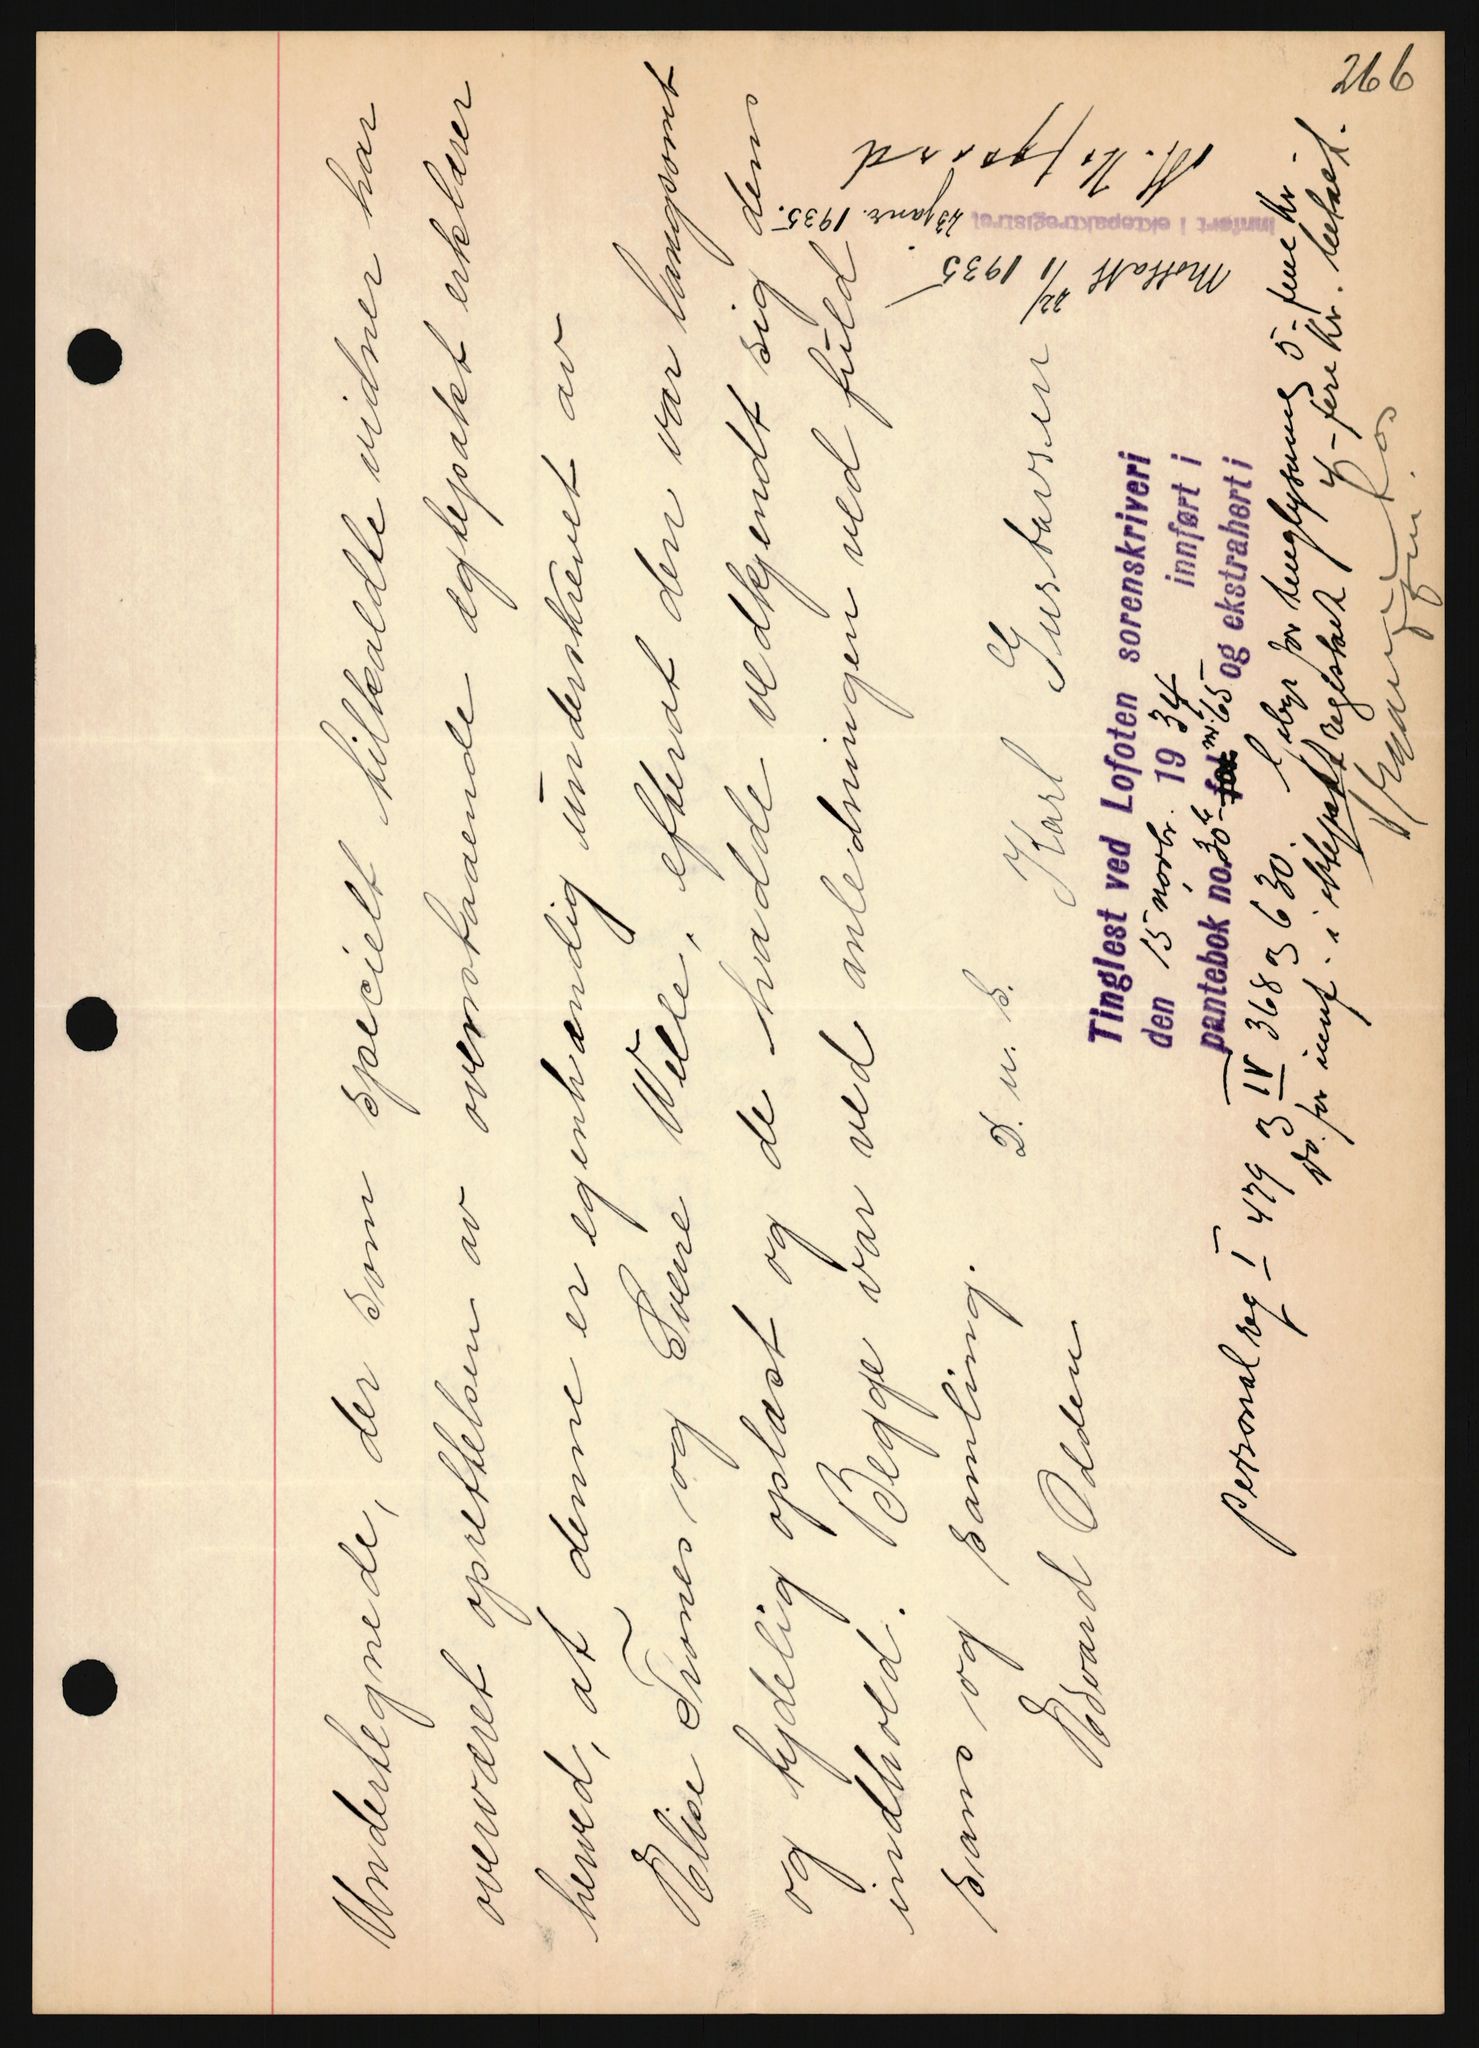 Undertegnede, der som specielt tilkaldte vidner har
overværet oprettelsen av ovenstaaende ægtepakt erklærer
herved, at denne er egenhændig underskrevet av
Elise Trones og Sverre Wele, efterat den var langsomt
og tydelig oplæst og de hadde vedkjendt sig dens
indhold. Begge var ved anledningen ved fuld
sans og samling.
D. u. s.
Edvard Olsen Karl Gustavsen
Tinglest ved Lofoten sorenskriveri
den 15 novbr. 1934 innført i
pantebok no. 30 b - fol. nr. 65 og ekstrahert i
Personalreg I 479 3 IV 368 3 630. Gebyr for tinglysning 5 - fem kr -
Do. for innf. i ektepaktregistret 4 - fire kr. betalt.
Mottatt 22/1 1935
Innført i ektepaktregistret
23 janr. 1935.
266